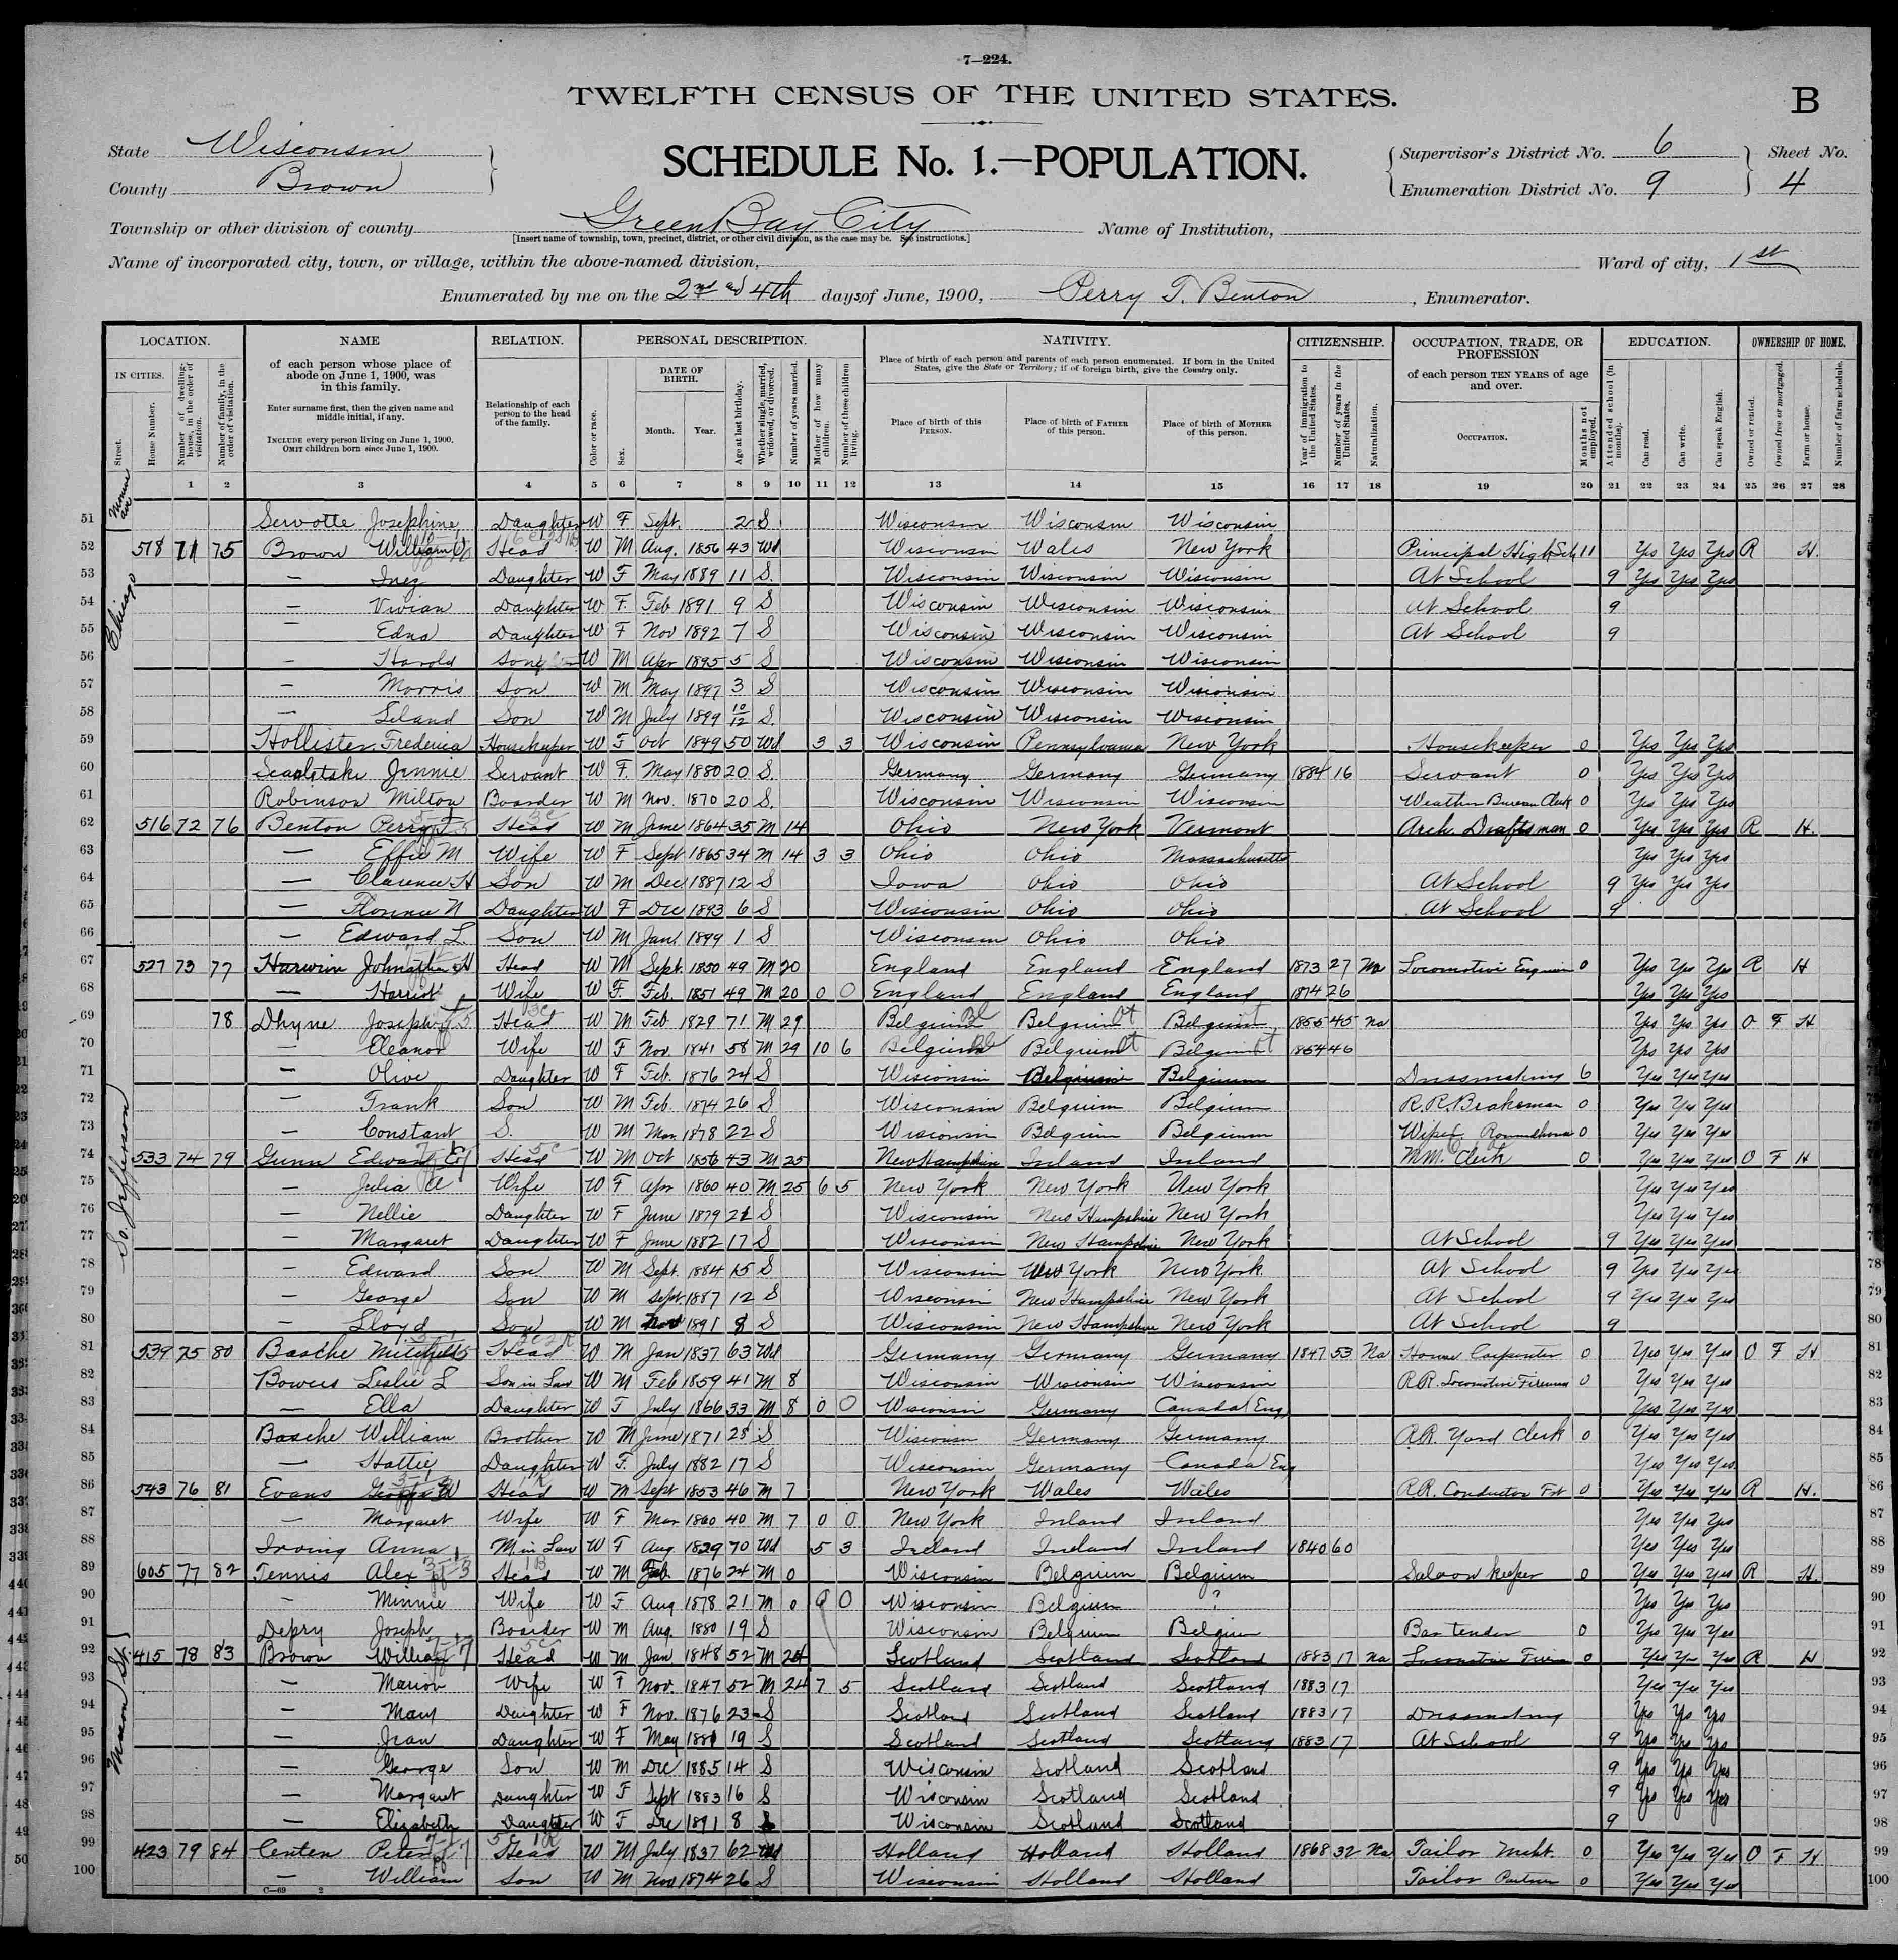 7—224.
TWELFTH CENSUS OF THE UNITED STATES.
B
State Wisconsin
County Brown
SCHEDULE No. 1.—POPULATION.
Supervisor's District No. 6
Enumeration District No. 9
Sheet No. 4
Township or other division of county Green Bay City
[Insert name of township, town, precinct, district, or other civil division, as the case may be. See instructions.]
Name of Institution,
Name of incorporated city, town, or village, within the above-named division,
Ward of city, 1st
Enumerated by me on the 2nd and 4th days of June, 1900, Perry T. Benton, Enumerator.
LOCATION. NAME RELATION. PERSONAL DESCRIPTION. NATIVITY. CITIZENSHIP. OCCUPATION, TRADE, OR PROFESSION EDUCATION. OWNERSHIP OF HOME.
IN CITIES.
Street.
House Number.
Number of dwelling-house, in the order of visitation.
Number of family, in the order of visitation.
of each person whose place of abode on June 1, 1900, was in this family.
Enter surname first, then the given name and middle initial, if any.
INCLUDE every person living on June 1, 1900. OMIT children born since June 1, 1900.
Relationship of each person to the head of the family.
Color or race.
Sex.
DATE OF BIRTH.
Month. Year.
Age at last birthday.
Whether single, married, widowed, or divorced.
Number of years married.
Mother of how many children.
Number of these children living.
Place of birth of each person and parents of each person enumerated. If born in the United States, give the State or Territory; if of foreign birth, give the Country only.
Place of birth of this PERSON.
Place of birth of FATHER of this person.
Place of birth of MOTHER of this person.
Year of immigration to the United States.
Number of years in the United States.
Naturalization.
of each person TEN YEARS of age and over.
OCCUPATION.
Months not employed.
Attended school (in months).
Can read.
Can write.
Can speak English.
Owned or rented.
Owned free or mortgaged.
Farm or house.
Number of farm schedule.
1 2 3 4 5 6 7 8 9 10 11 12 13 14 15 16 17 18 19 20 21 22 23 24 25 26 27 28
51 Servotte Josephine Daughter W F Sept. 2 S Wisconsin Wisconsin Wisconsin
Chicago
52 518 71 75 Brown William Head W M Aug. 1856 43 Wd Wisconsin Wales New York Principal High Sch 11 Yes Yes Yes R H.
53 — Inez Daughter W F May 1889 11 S. Wisconsin Wisconsin Wisconsin At School 9 Yes Yes Yes
54 — Vivian Daughter W F. Feb 1891 9 S Wisconsin Wisconsin Wisconsin At School 9
55 — Edna Daughter W F Nov 1892 7 S Wisconsin Wisconsin Wisconsin At School 9
56 — Harold Son W M Apr 1895 5 S Wisconsin Wisconsin Wisconsin
57 — Morris Son W M May 1897 3 S Wisconsin Wisconsin Wisconsin
58 — Leland Son W M July 1899 10/12 S. Wisconsin Wisconsin Wisconsin
59 Hollister Frederica Housekeeper W F Oct 1849 50 Wd 3 3 Wisconsin Pennsylvania New York Housekeeper 0 Yes Yes Yes
60 Jennie Servant W F. May 1880 20 S. Germany Germany Germany 1884 16 Servant 0 Yes Yes Yes
61 Robinson Milton Boarder W M Nov. 1870 20 S. Wisconsin Wisconsin Wisconsin Weather Bureau Clerk 0 Yes Yes Yes
62 516 72 76 Benton Perry T Head W M June 1864 35 M 14 Ohio New York Vermont Arch. Draftsman 0 Yes Yes Yes R H.
63 — Effie M Wife W F Sept 1865 34 M 14 3 3 Ohio Ohio Massachusetts Yes Yes Yes
64 — Clarence H Son W M Dec 1887 12 S Iowa Ohio Ohio At School 9 Yes Yes Yes
65 — Florence N Daughter W F Dec 1893 6 S Wisconsin Ohio Ohio At School 9
66 — Edward L. Son W M Jan. 1899 1 S Wisconsin Ohio Ohio
So. Jefferson
67 527 73 77 Harwin Johnathan H Head W M Sept. 1850 49 M 20 England England England 1873 27 Na Locomotive Engineer 0 Yes Yes Yes R H
68 — Harriet Wife W F. Feb. 1851 49 M 20 0 0 England England England 1874 26 Yes Yes Yes
69 78 Dhyne Joseph Head W M Feb 1829 71 M 29 Belgium Belgium Belgium 1855 45 Na Yes Yes Yes O F H
70 — Eleanor Wife W F Nov. 1841 58 M 29 10 6 Belgium Belgium Belgium 1854 46 Yes Yes Yes
71 — Olive Daughter W F Feb. 1876 24 S Wisconsin Belgium Belgium Dressmaking 6 Yes Yes Yes
72 — Frank Son W M Feb. 1874 26 S Wisconsin Belgium Belgium R.R. Brakeman 0 Yes Yes Yes
73 — Constant S. W M Mar. 1878 22 S Wisconsin Belgium Belgium Wiper Roundhouse 0 Yes Yes Yes
74 533 74 79 Gunn Edward E Head W M Oct 1856 43 M 25 New Hampshire Ireland Ireland Clerk 0 Yes Yes Yes O F H
75 — Julia A Wife W F Apr 1860 40 M 25 6 5 New York New York New York Yes Yes Yes
76 — Nellie Daughter W F June 1879 21 S Wisconsin New Hampshire New York Yes Yes Yes
77 — Margaret Daughter W F June 1882 17 S Wisconsin New Hampshire New York At School 9 Yes Yes Yes
78 — Edward Son W M Sept. 1884 15 S Wisconsin New York New York At School 9 Yes Yes Yes
79 — George Son W M Sept. 1887 12 S Wisconsin New Hampshire New York At School 9 Yes Yes Yes
80 — Lloyd Son W M Nov 1891 8 S Wisconsin New Hampshire New York At School 9
81 539 75 80 Basche Mitchell Head W M Jan 1837 63 Wd Germany Germany Germany 1847 53 Na House Carpenter 0 Yes Yes Yes O F H
82 Bowers Leslie L Son in Law W M Feb 1859 41 M 8 Wisconsin Wisconsin Wisconsin R.R. Locomotive Fireman 0 Yes Yes Yes
83 — Ella Daughter W F July 1866 33 M 8 0 0 Wisconsin Germany Canada Eng Yes Yes Yes
84 Basche William Brother W M June 1871 28 S Wisconsin Germany Germany R.R. Yard Clerk 0 Yes Yes Yes
85 — Hattie Daughter W F. July 1882 17 S Wisconsin Germany Canada Eng Yes Yes Yes
86 543 76 81 Evans George W Head W M Sept 1853 46 M 7 New York Wales Wales R.R. Conductor Frt 0 Yes Yes Yes R H.
87 — Margaret Wife W F Mar 1860 40 M 7 0 0 New York Ireland Ireland Yes Yes Yes
88 Irving Anna M in Law W F Aug. 1829 70 Wd 5 3 Ireland Ireland Ireland 1840 60 Yes Yes Yes
89 605 77 82 Tennis Alex Head W M Feb. 1876 24 M 0 Wisconsin Belgium Belgium Saloon keeper 0 Yes Yes Yes R H.
90 — Minnie Wife W F Aug 1878 21 M 0 0 0 Wisconsin Belgium ? Yes Yes Yes
91 Depry Joseph Boarder W M Aug. 1880 19 S Wisconsin Belgium Belgium Bartender 0 Yes Yes Yes
Mason St.
92 415 78 83 Brown William Head W M Jan 1848 52 M 24 Scotland Scotland Scotland 1883 17 Na Locomotive 0 Yes Yes Yes R H
93 — Marion Wife W F Nov. 1847 52 M 24 7 5 Scotland Scotland Scotland 1883 17 Yes Yes Yes
94 — Mary Daughter W F Nov. 1876 23 S Scotland Scotland Scotland 1883 17 Dressmaking Yes Yes Yes
95 — Jean Daughter W F May 1881 19 S Scotland Scotland Scotland 1883 17 At School 9 Yes Yes Yes
96 — George Son W M Dec 1885 14 S Wisconsin Scotland Scotland 9 Yes Yes Yes
97 — Margaret Daughter W F Sept 1883 16 S Wisconsin Scotland Scotland 9 Yes Yes Yes
98 — Elizabeth Daughter W F Dec 1891 8 S Wisconsin Scotland Scotland 9
99 423 79 84 Centen Peter Head W M July 1837 62 Wd Holland Holland Holland 1868 32 Na Tailor Mcht. 0 Yes Yes Yes O F H
100 — William Son W M Nov 1874 26 S Wisconsin Holland Holland Tailor 0 Yes Yes Yes
C—69 2